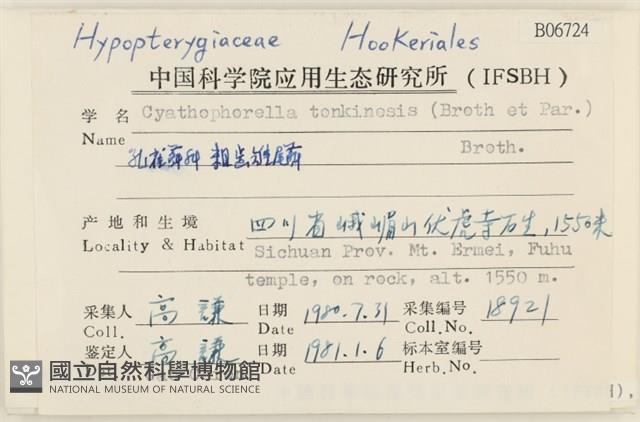 Hypopterygiaceae Hookeriales B06724
中国科学院应用生态研究所 (IFSBH)
学名 Cyathophorella tonkinesis (Broth et Par.)
Name Broth.
孔雀藓科 粗齿雉尾藓
产地和生境 四川省峨嵋山伏虎寺石生, 1550米
Locality & Habitat Sichuan Prov. Mt. Ermei, Fuhu
temple, on rock, alt. 1550 m.
采集人 高謙 日期 1980.7.31 采集编号 18921
Coll. Date Coll.No.
鉴定人 高謙 日期 1981.1.6 标本室编号
Date Herb.No.
國立自然科學博物館
NATIONAL MUSEUM OF NATURAL SCIENCE